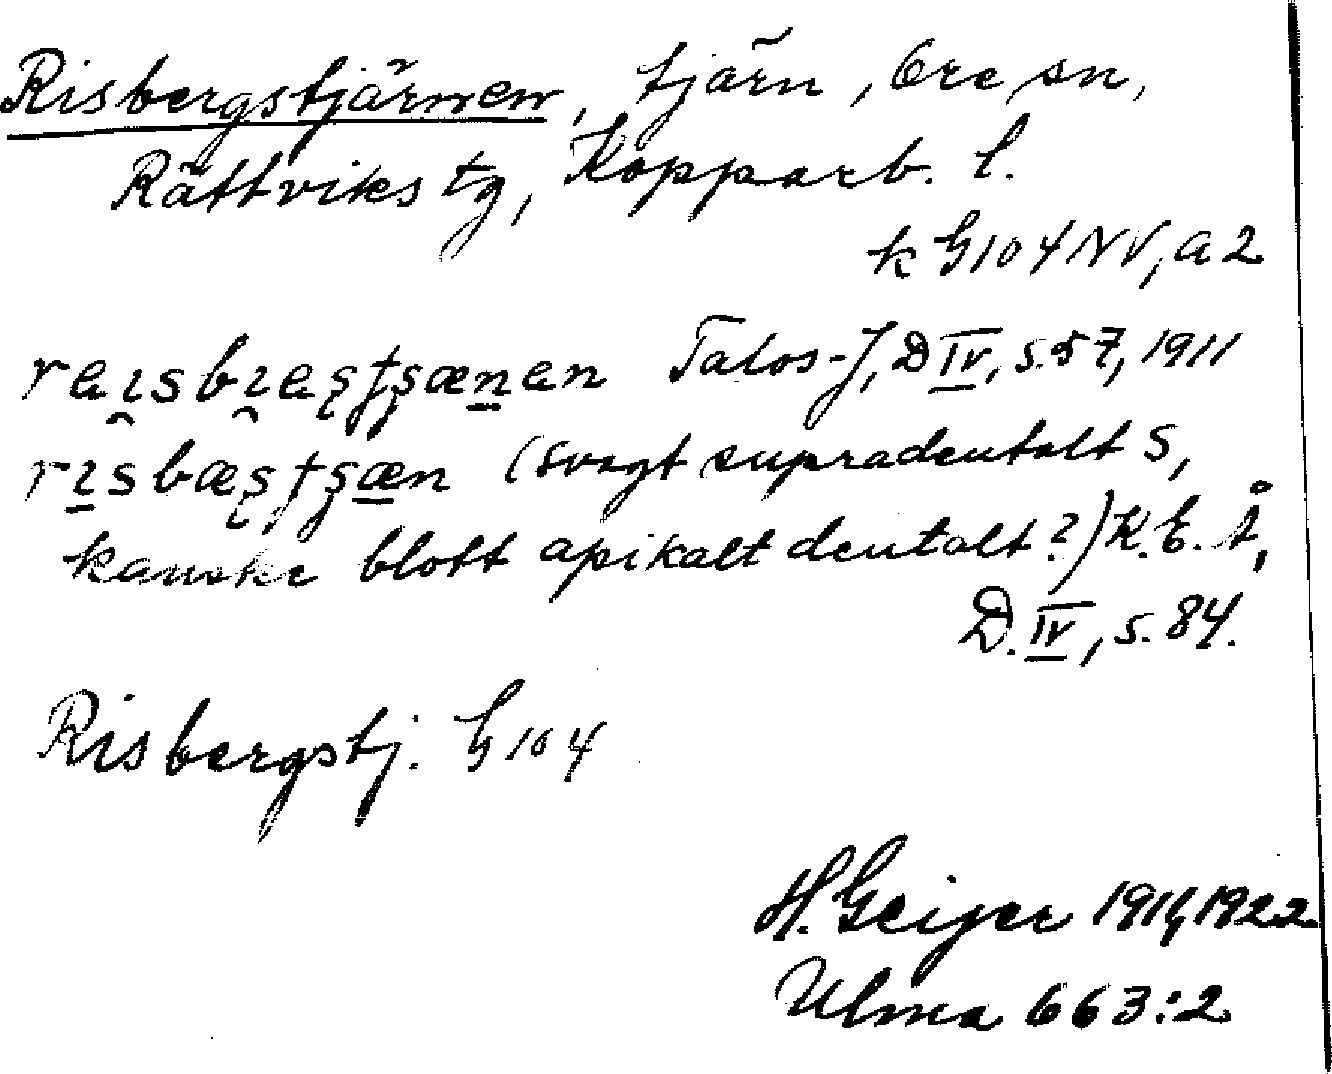 Risbergstjärnen, tjärn, Ore sn,
Rättviks tg, Kopparb. l.
k G104NV, a2
raɪ̯sbɪ̯aʂtʂæn̲an Talos-J, D IV, s.57, 1911
rɪ̲sbæʂtʂæ̲n (svagt supradentalt s,
kanske blott apikalt dentalt?) K.E.Å,
D. IV, s. 84.
Risbergstj. G104
H. Geijer 1911, 1922
Ulma 663:2